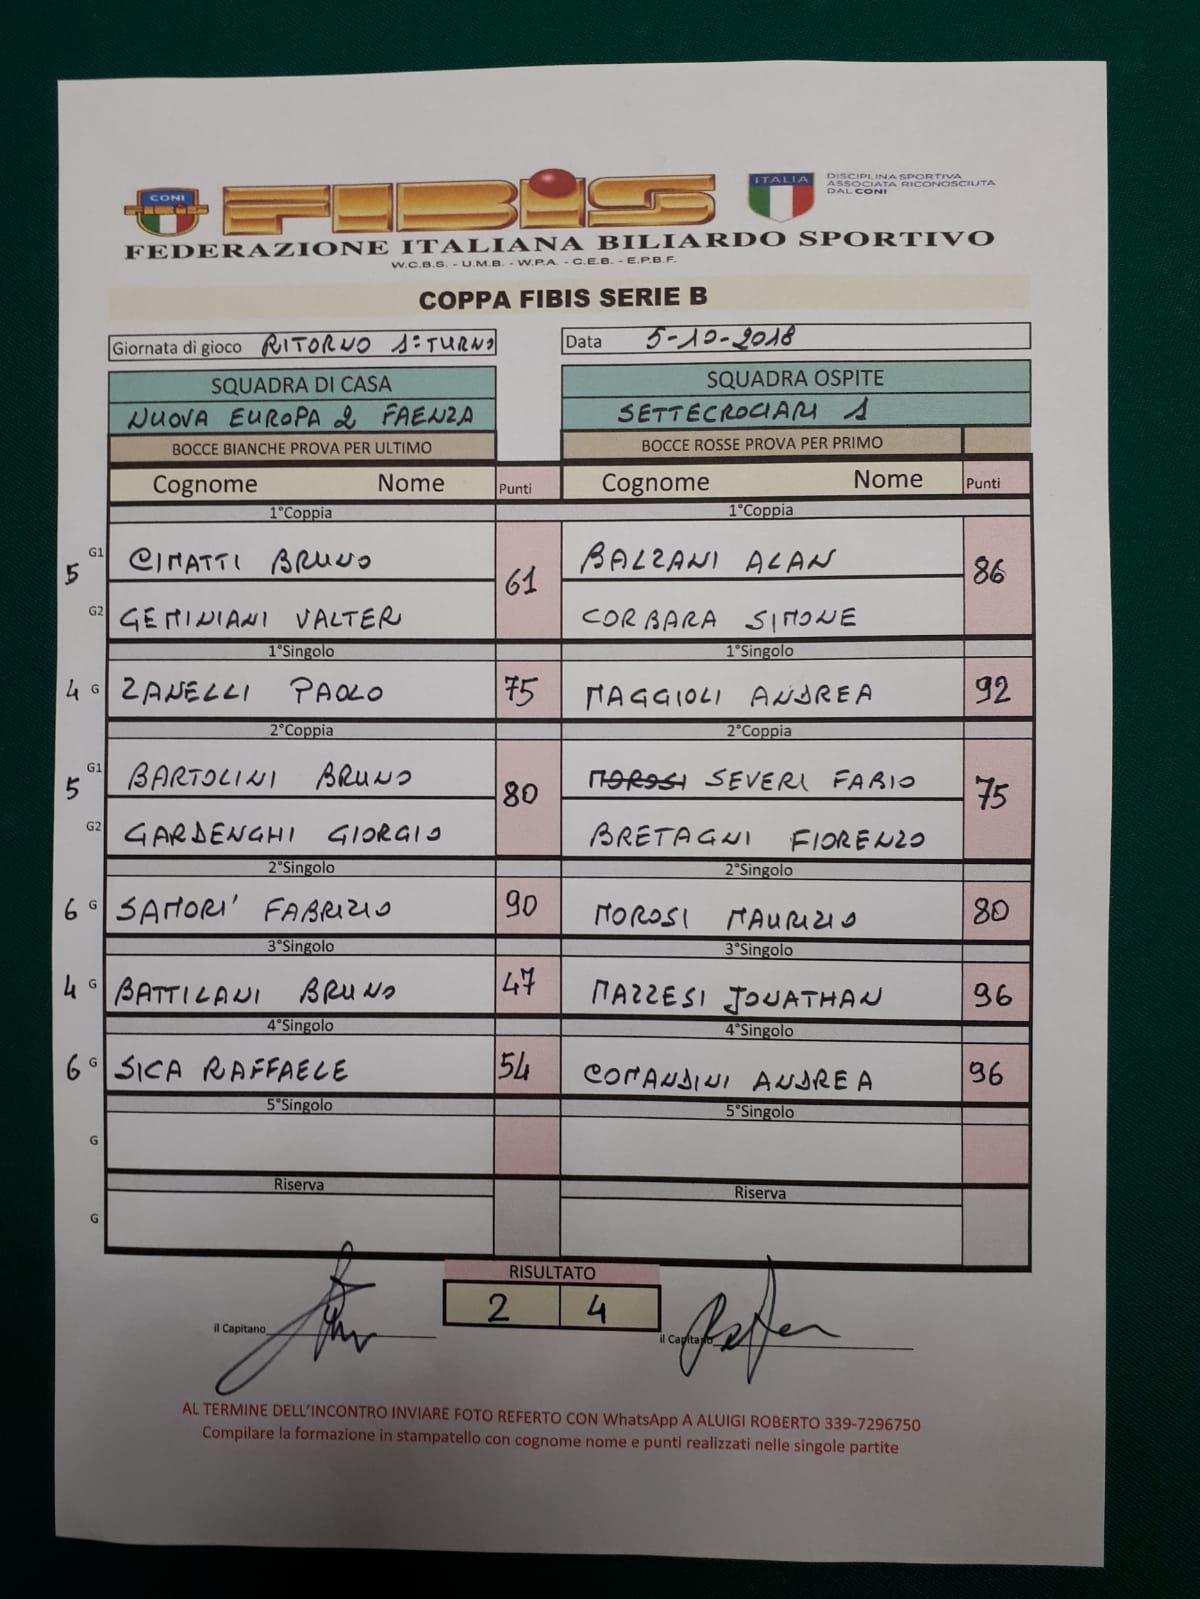 CONI FIBIS ITALIA DISCIPLINA SPORTIVA
ASSOCIATA RICONOSCIUTA
DAL CONI
FEDERAZIONE ITALIANA BILIARDO SPORTIVO
W.C.B.S. - U.M.B. - W.P.A. - C.E.B. - E.P.B.F.
COPPA FIBIS SERIE B
Giornata di gioco RITORNO 1° TURNO Data 5-10-2018
SQUADRA DI CASA SQUADRA OSPITE
NUOVA EUROPA 2 FAENZA SETTECROCIARI 1
BOCCE BIANCHE PROVA PER ULTIMO BOCCE ROSSE PROVA PER PRIMO
Cognome Nome Punti Cognome Nome Punti
1°Coppia 1°Coppia
5 G1 CIMATTI BRUNO 61 BALZANI ALAN 86
G2 GEMINIANI VALTER CORBARA SIMONE
1°Singolo 1°Singolo
4 G ZANELLI PAOLO 75 MAGGIOLI ANDREA 92
2°Coppia 2°Coppia
5 G1 BARTOLINI BRUNO 80 MOROSI SEVERI FABIO 75
G2 GARDENGHI GIORGIO BRETAGNI FIORENZO
2°Singolo 2°Singolo
6 G SAMORI' FABRIZIO 90 MOROSI MAURIZIO 80
3°Singolo 3°Singolo
4 G BATTILANI BRUNO 47 MAZZESI JONATHAN 96
4°Singolo 4°Singolo
6 G SICA RAFFAELE 54 COMANDINI ANDREA 96
5°Singolo 5°Singolo
G
Riserva Riserva
G
RISULTATO
2 4
il Capitano il Capitano
AL TERMINE DELL'INCONTRO INVIARE FOTO REFERTO CON WhatsApp A ALUIGI ROBERTO 339-7296750
Compilare la formazione in stampatello con cognome nome e punti realizzati nelle singole partite